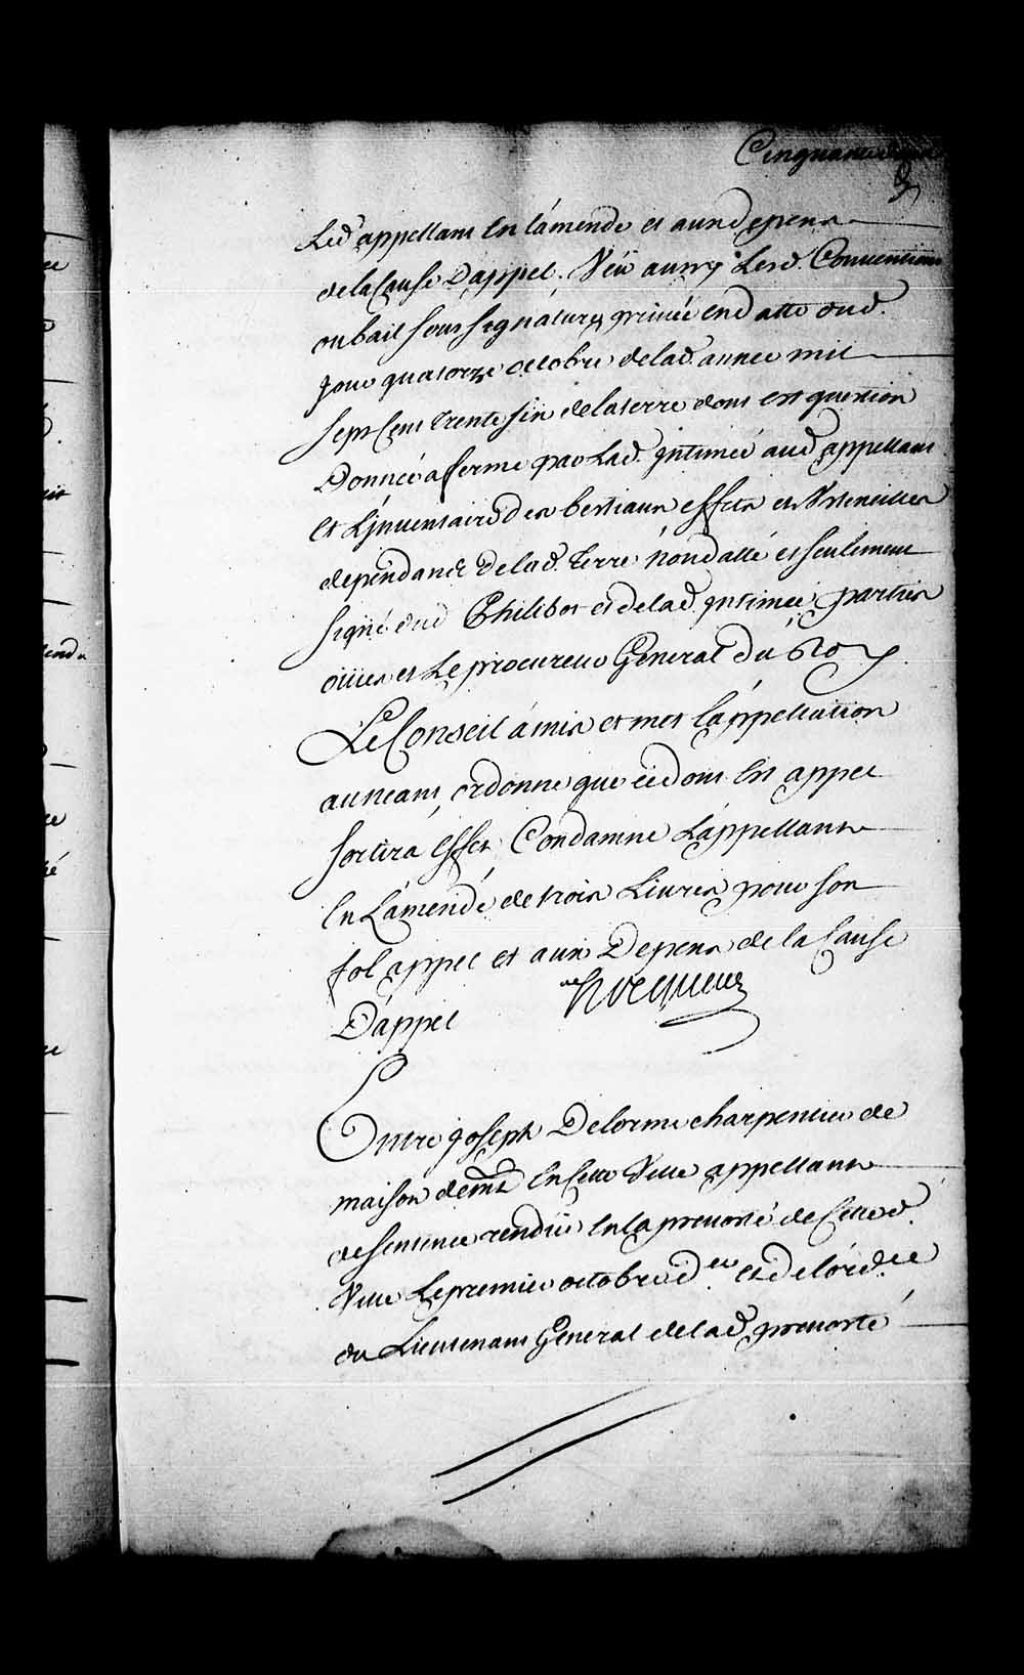 Led. appellant En L'amende et aux depens
de la Cause D'appel. Veü aussy Lesd. Conventions
ou bail sous signatures privée en datte dud.
Jour quatorze octobre de lad. année mil
sept Cent trente six de la terre dont est question
Donnée a ferme par Lad. Intimée aud. appellant
Et L'Inventaire des bestiaux effets et Ustencilles
dependant de lad. Terre non datté et seulement
signé dud. Philibot et de lad. intimée, parties
ouies et Le procureur General du Roy
Le Conseil a mis et met L'appellation
au neant, ordonne que ce dont Est appel
sortira effet Condamne L'appellant
En L'amende de trois Livres pour son
fol appel et aux Depens de la Cause
D'appel Hocquart
Entre Joseph Delorme charpentier de
maison demt. En Cette Ville appellant
de sentence rendüe En la prevosté de Cette d.
Ville Le premier octobre der. et de l'ord.ce
du Lieutenant General de lad. prevosté